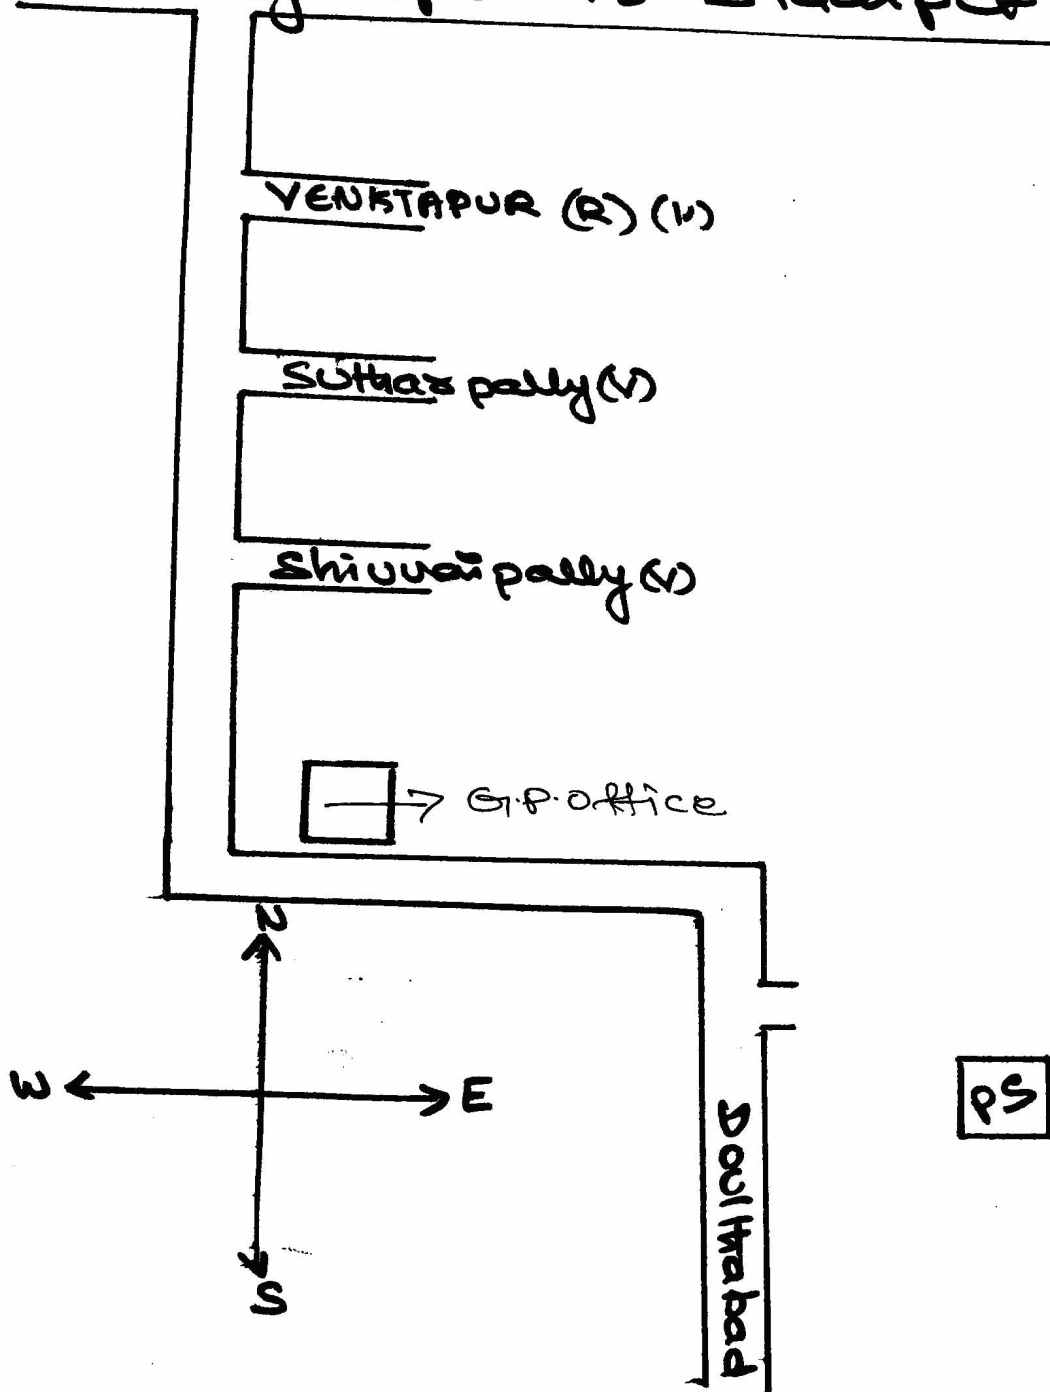 VENKTAPUR (R) (V)
Suthar pally (V)
Shivvai pally (V)
G.P. office
N
W
E
S
PS
Doulthabad